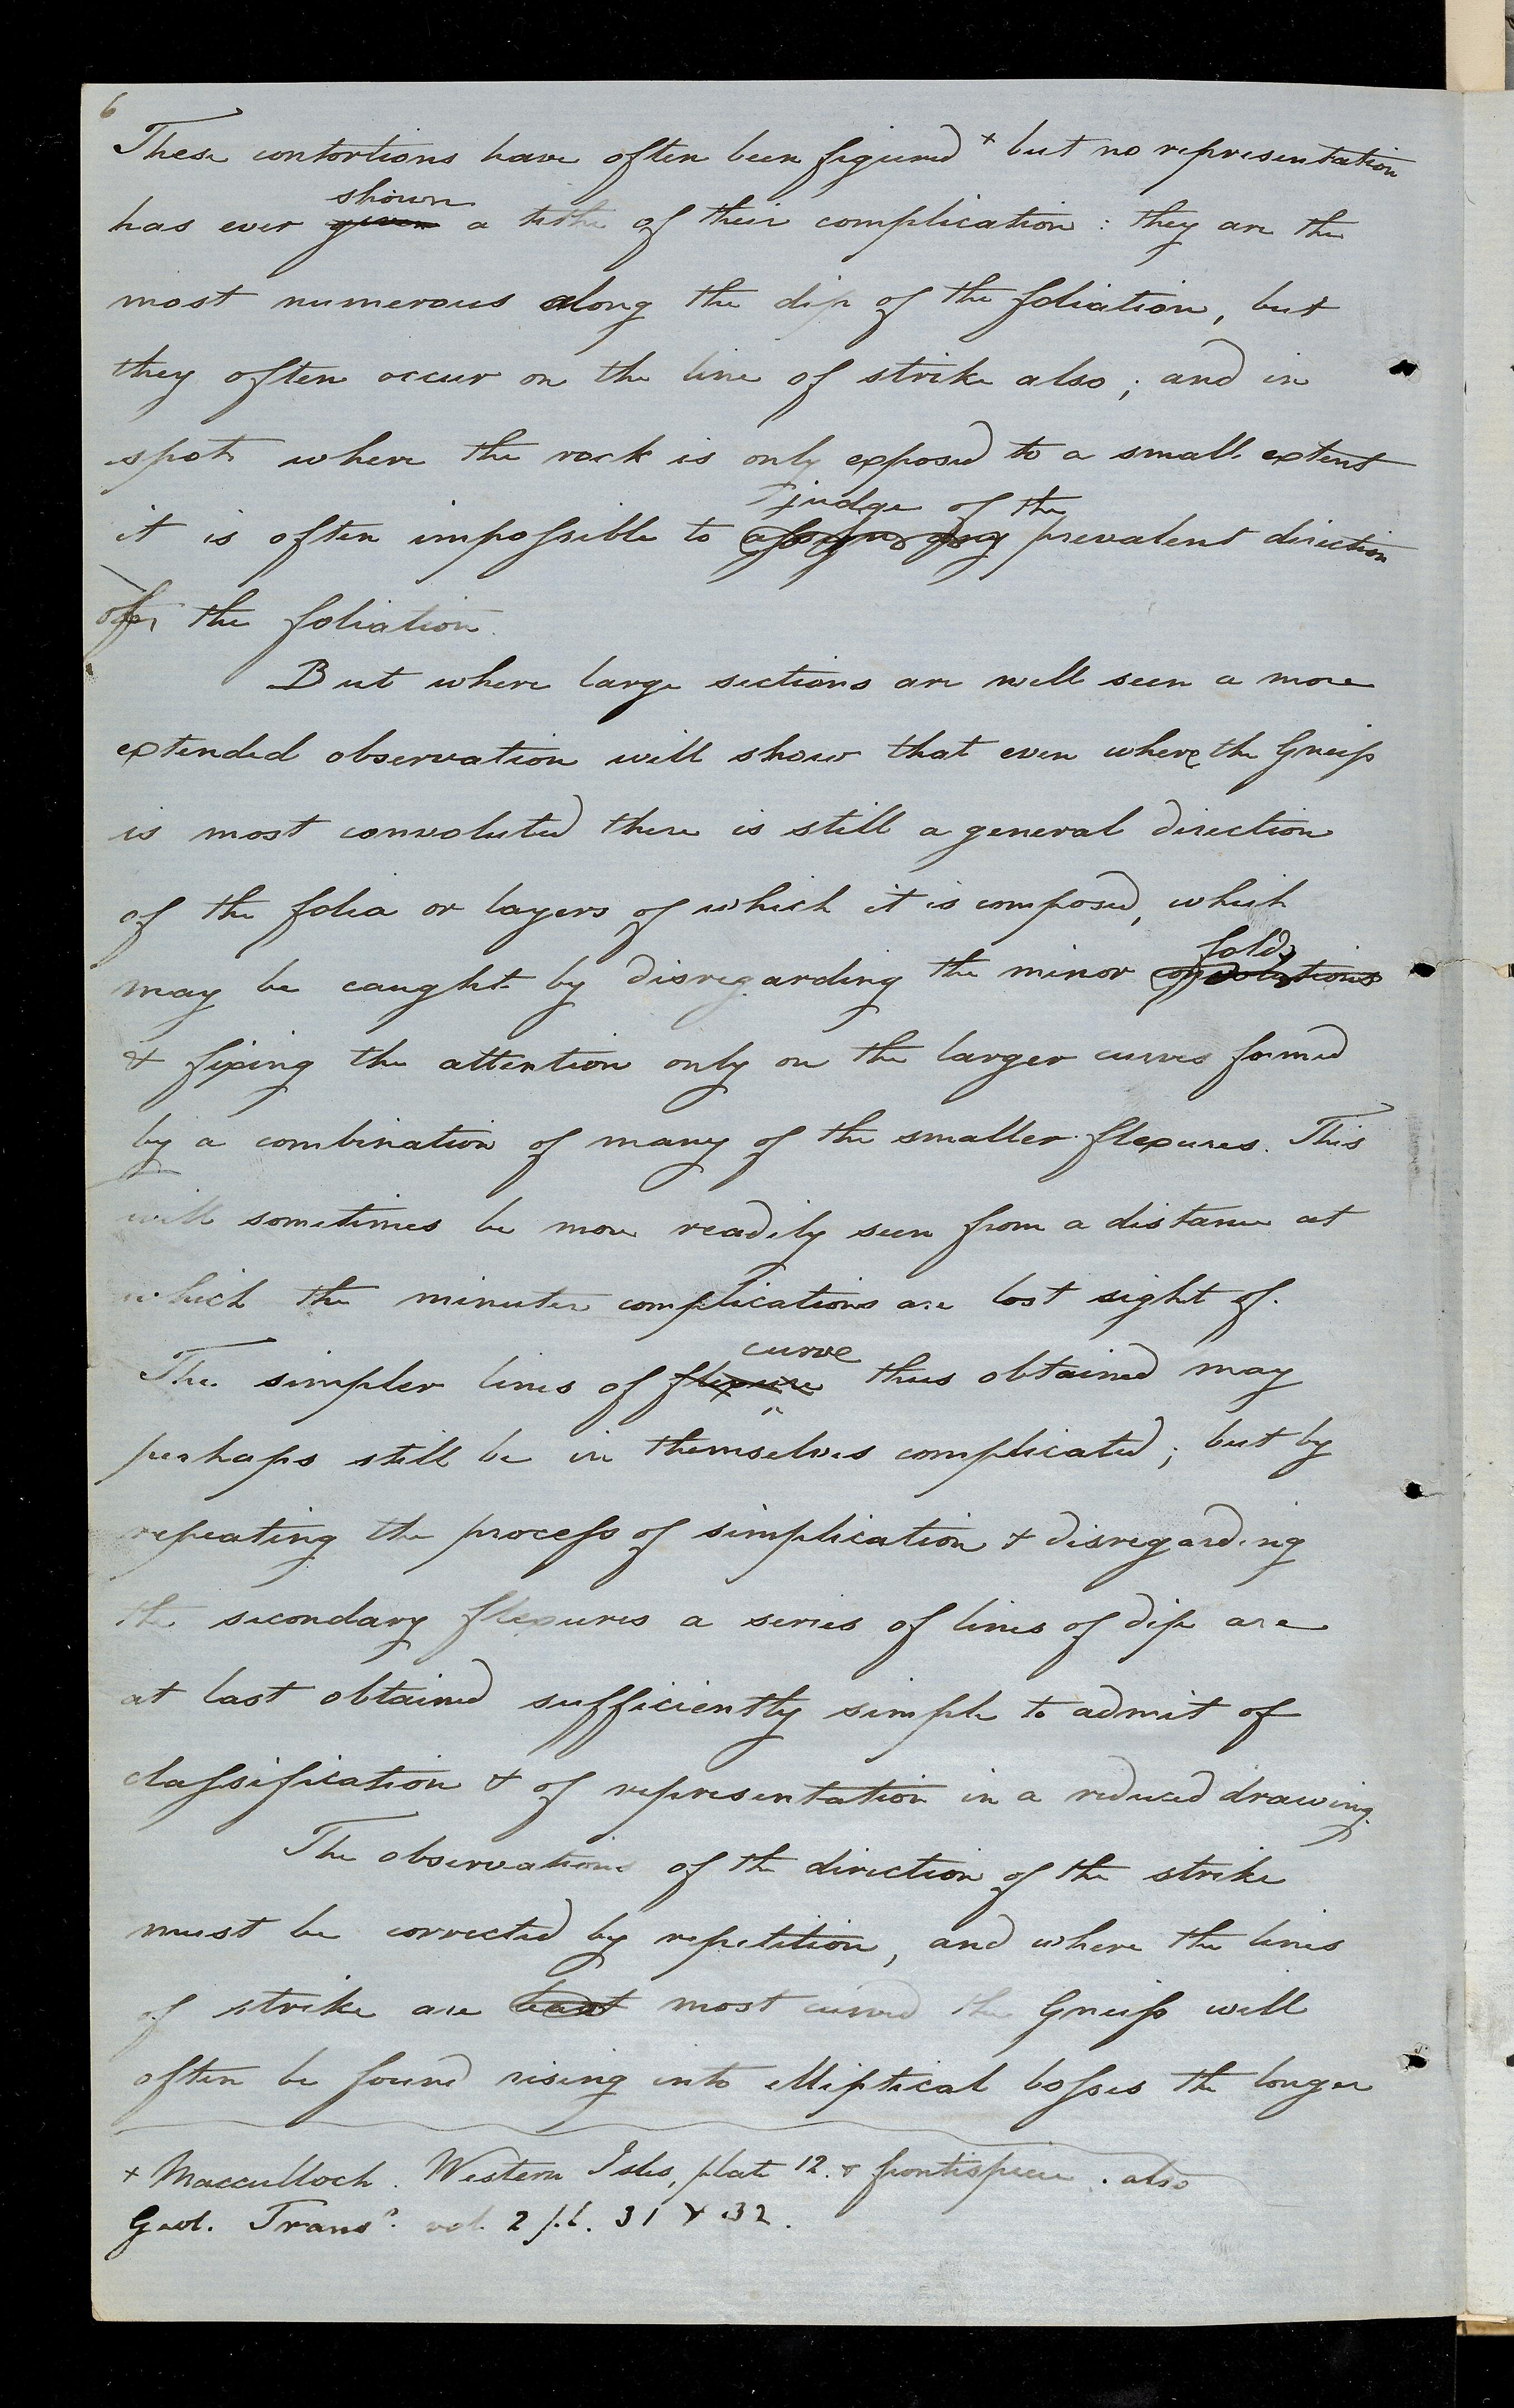 6
These contortions have often been figured + but no representation
shown
has ever given a tithe of their complication : they are the
most numerous along the dip of the foliation, but
they often occur on the line of strike also ; and in
spots where the rock is only exposed to a small extent
judge of the
it is often impossible to assign any prevalent direction
of the foliation.
But where large sections are well seen a more
extended observation will show that even where the Gneiss
is most convoluted there is still a general direction
of the folia or layers of which it is composed, which
folds
may be caught by disregarding the minor
& fixing the attention only on the larger curves formed
by a combination of many of the smaller flexures. This
will sometimes be more readily seen from a distance at
which the minuter complications are lost sight of.
curve
The simpler lines of flexure thus obtained may
perhaps still be in themselves complicated ; but by
repeating the process of simplication & disregarding
the secondary flexures a series of lines of dip are
at last obtained sufficiently simple to admit of
classification & of representation in a reduced drawing.
The observations of the direction of the strike
must be corrected by repetition, and where the lines
of strike are least most curved the Gneiss will
often be found rising into elliptical bosses the longer
+ Macculloch. Western Isles, plate 12. & frontispiece. also
Geol. Trans. vol. 2 pl. 31 & 32.